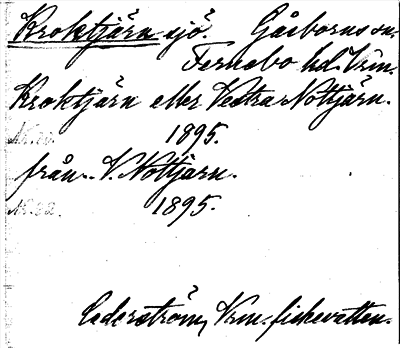 Kroktjärn sjö. Gåsborns sn.
Fernebo hd. Vrm.
Kroktjärn eller Vestra Nottjärn.
Nr. 20. 1895.
från V. Nottjärn.
Nr. 22. 1895.
Cederström, Vrm. fiskevatten.